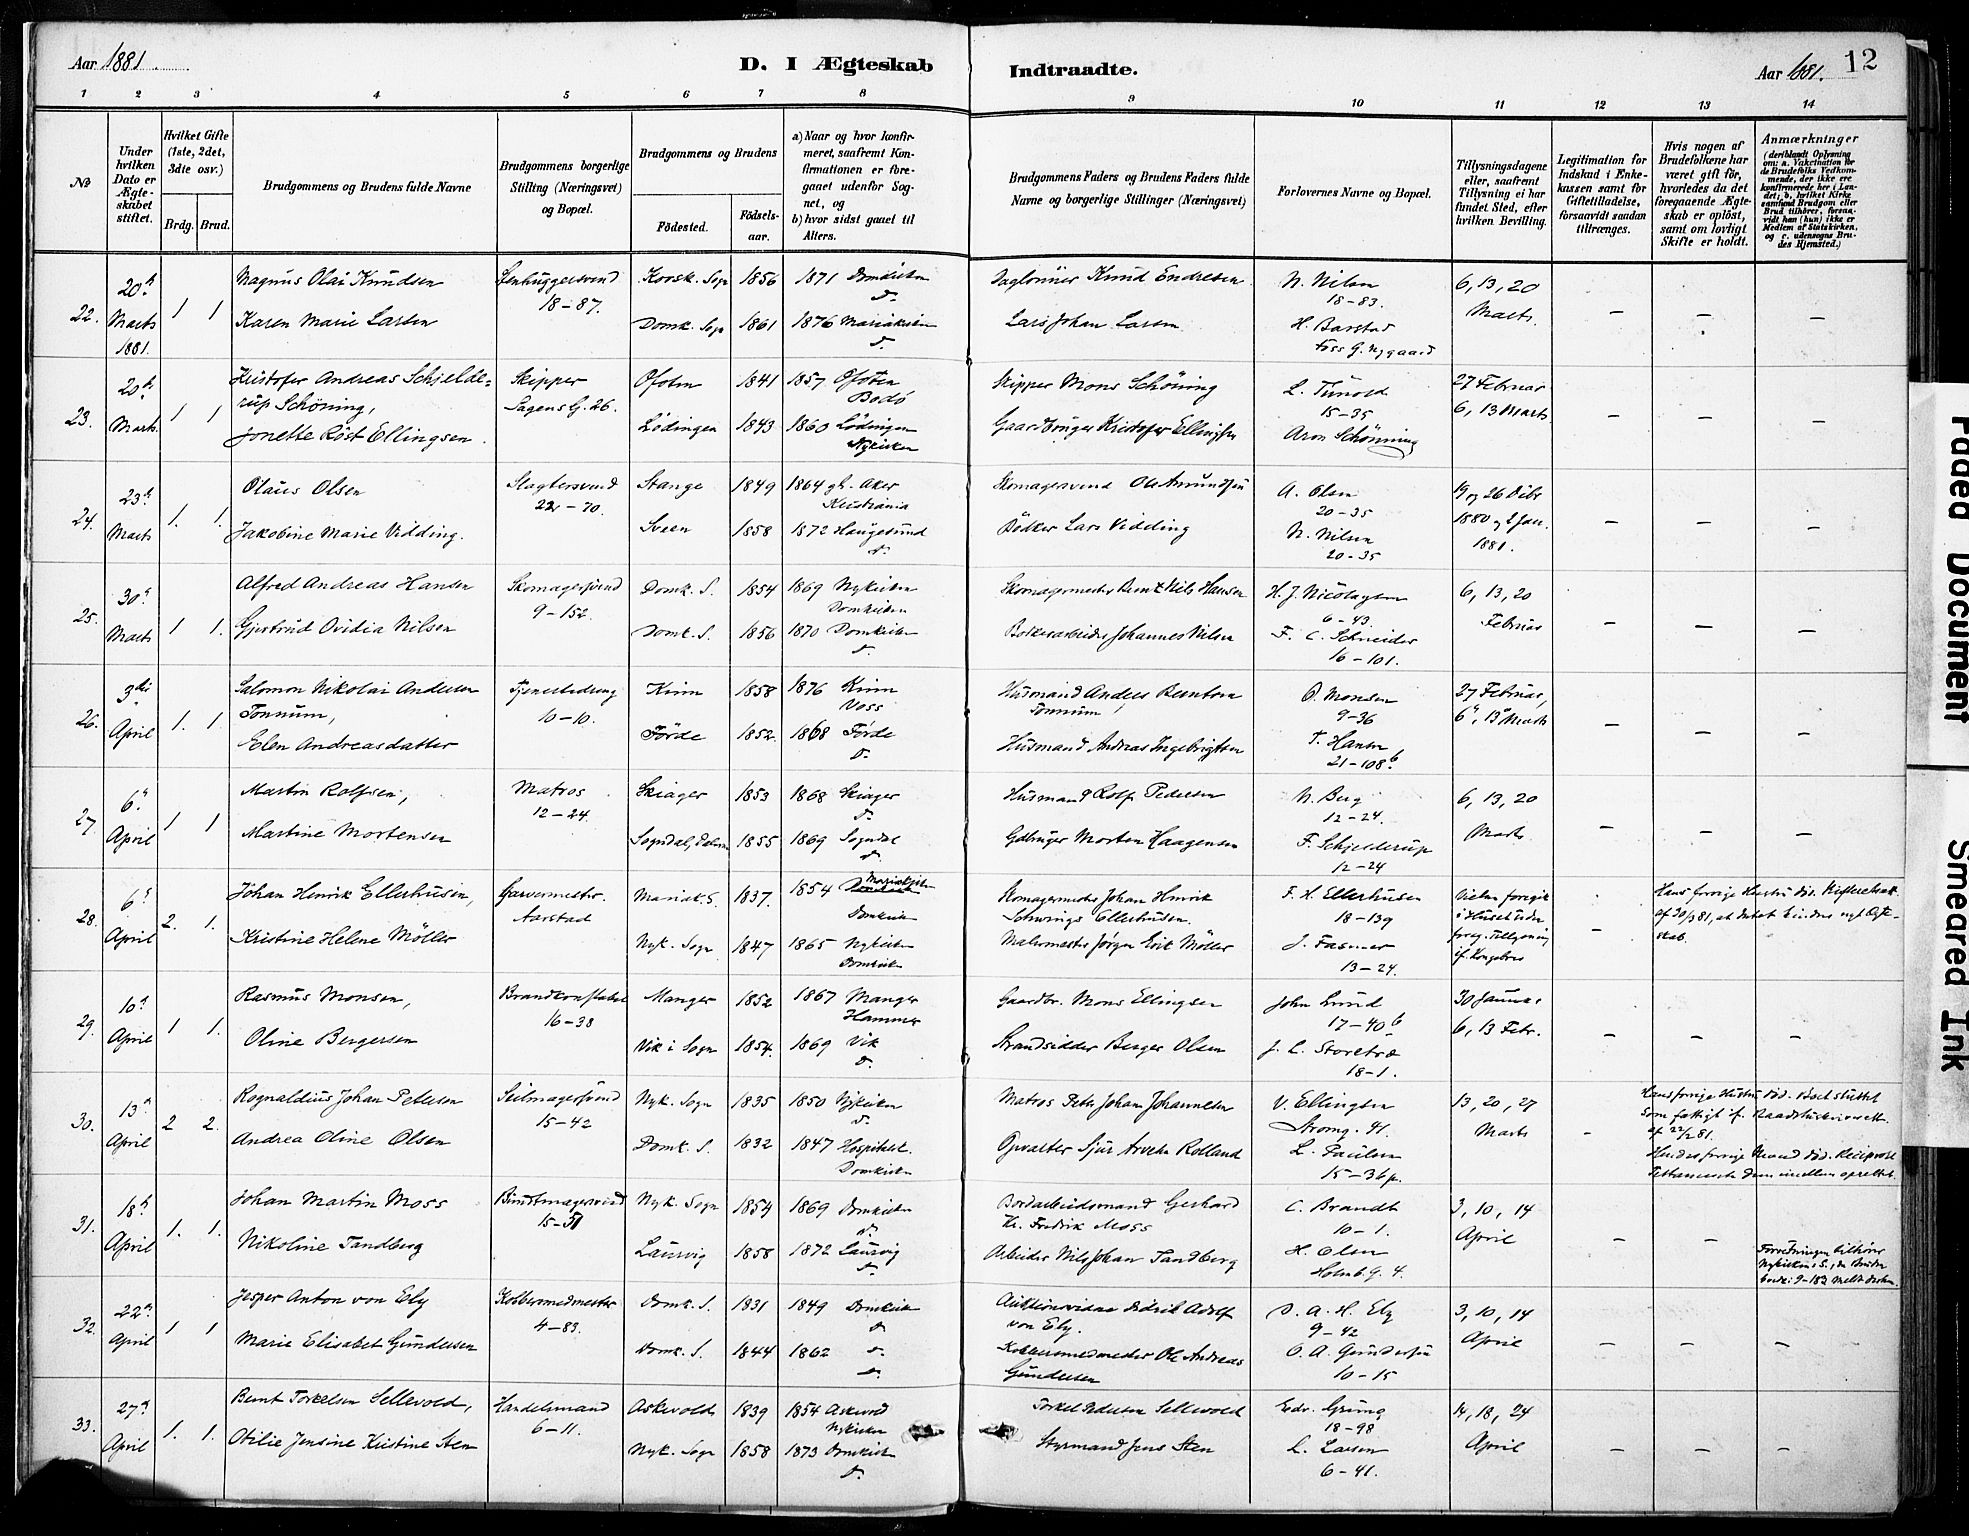 Aar 1881.
D. I Ægteskab
Indtraadte.
Aar 1881.
12
1 2 3 4 5 6 7 8
9 10 11 12 13 14
No
Under hvilken Dato er Ægteskabet stiftet.
Hvilket Gifte (1ste, 2det, 3die osv.)
Brdg. Brud.
Brudgommens og Brudens fulde Navne
Brudgommens borgerlige Stilling (Næringsvei) og Bopæl.
Brudgommens og Brudens
Födested.
Födselsaar.
a) Naar og hvor konfirmeret, saafremt Konfirmationen er foregaaet udenfor Sognet, og
b) hvor sidst gaaet til Alters.
Brudgommens Faders og Brudens Faders fulde Navne og borgerlige Stillinger (Næringsvei)
Forlovernes Navne og Bopæl.
Tillysningsdagene eller, saafremt Tillysning ei har fundet Sted, efter hvilken Bevilling.
Legitimation for Indskud i Enkekassen samt for Giftetilladelse, forsaavidt saadan tiltrænges.
Hvis nogen af Brudefolkene har været gift för, hvorledes da det foregaaende Ægteskab er oplöst, samt om lovligt Skifte er holdt.
Anmærkninger
(deriblandt Oplysning om: a. Vakcination for de Brudefolks Vedkommende, der ikke ere konfirmerede her i Landet; b. hvilket Kirkesamfund Brudgom eller Brud tilhörer, forsaavidt han (hun) ikke er Medlem af Statskirken, og c. udensogns Brudes Hjemsted.)
22. 20de Marts 1881. 1 1
Magnus Olai Knudsen 18-87. 1856 1871 Domkirken Daglönner Knud Endresen N. Nilsen 18-83. 6, 13, 20 Marts
Karen Marie Larsen Domk. Sogn 1861 1876 Mariakirken Lars Johan Larsen H. Barstad
23. 20de Marts 1 1
Kristofer Andreas Schjelderup Schöning, Skipper Ofoten 1841 1857 Ofoten Bodö Skipper Mons Schöning 15-35 27 Februar 6, 13 Marts
Jonette Röst Ellingsen Lödingen 1843 1860 Lödingen Nykirken Gaardbruger Kristofer Ellingsen Aron Schönning
24. 23de Marts 1. 1.
Olaus Olsen Slagtersvend 22-70. Stange 1849 1864 gl. Aker Kristiania Skomagersvend Ole Amundsen A. Olsen 20-35 19 og 26 Debr 1880 og 2 Jan. 1881.
Jakobine Marie Vidding. Sveen 1858 1872 Haugesund Bödker Lars Vidding N. Nilsen 20-35
25. 30te Marts 1 1.
Alfred Andreas Hansen Skomagersvend 9-152. Domk. S. 1854 1869 Nykirken Domkirken Skomagermester Bernt Nils Hansen H. J. Nicolaysen 6-43. 6, 13, 20 Februar
Gjertrud Ovidia Nilsen Domk. S. 1856 1870 Domkirken Johannes Nilsen F. C. Schneider 16-101.
26. 3die April 1. 1.
Salomon Nikolai Andersen Tonnum, 10-10. Kinn 1858 1876 Kinn Voss Husmand Anders Berntsen Tonnum O. Monsen 9-36 27 Februar, 6, 13 Marts
Elen Andreasdatter Förde 1852. 1868 Förde Husmand Andreas Ingebrigtsen T. Hansen, 21-108b
27. 6te April 1 1
Martin Rolfsen, Matros 12-24. Skiager 1853 1868 Skiager Husmand Rolf Pedersen N. Berg 12-24. 6, 13, 20 Marts
Martine Mortensen Sogndal, 1855 1869 Sogndal Gdbruger Morten Haagensen F. Schjelderup 12-24
28. 6te April 2. 1.
Johan Henrik Ellerhusen, Garvermester. Aarstad Mariak. S. 1837. 1854 Mariakirken Domkirken Skomagermester Johan Henrik Ellerhusen. F. H. Ellerhusen 18-139 Vielsen foregik i Huset uden foreg. Tillysning Hans forrige Hustru död.
Kristine Helene Möller Nyk. Sogn 1847 1865 Nykirken Domkirken Malermester Jörgen Erik Möller J. Fasmer 13-24.
29. 10de April 1 1.
Rasmus Monsen, Brandkonstabel 16-38 Manger 1852 1867 Manger Hammer Gaardbr. Mons Ellingsen John Lund 17-40b 30 Januar 6, 13 Febr.
Oline Bergersen Vik i Sogn 1854. 1869 Vik Strandsidder Berger Olsen J. L. Storetræ 18-1.
30. 13de April 2 2.
Rognaldius Johan Petersen Seilmagersvend 15-42 Nyk. Sogn 1835 1850 Nykirken Matros Peter Johan Johannesen V. Ellingsen Stromg. 41. 13, 20, 27 Marts Hans forrige Hustru död.
Andrea Oline Olsen Domk. S. 1832 1847 Hospitalet. Domkirken Opvarter Sjur Rolland L. Paulsen 15-36 Hendes forrige Mand död.
31. 18de April 1. 1.
Johan Martin Moss Buntmagersvend 15-51 Nyk. Sogn 1854 1869 Domkirken Gerhard Fredrik Moss C. Brandt 10-1. 3, 10, 14 April
Nikoline Tandberg Laurvig 1858 1872 Laurvig Arbeider Nils Johan Tandberg H. Olsen Holmb. G. 4.
32. 22de April 1 1
Jesper Anton von Ely Kobbersmedmester 4-83. Domk. S. 1831 1849 Domkirken Didrik Adolf von Ely. D. A. H. Ely 9-42 3, 10, 14 April
Marie Elisabet Gundersen Domk. S. 1844 1862 Kobbersmedmester Ole Andreas Gundersen O. A. Gundersen 10-15
33. 27de April 1. 1.
Bernt Torkelsen Sellevold, Handelsmand 6-11. Askevold 1839 1854 Askevold Nykirken Torkel Pedersen Sellevold Edv. Grung 18-98 14, 18, 24 April
Otilie Jensine Kristine Sten Nyk. Sogn 1858 1873 Domkirken Styrmand Jens Sten L. Larsen 6-41.
Faded Document
Smeared Ink